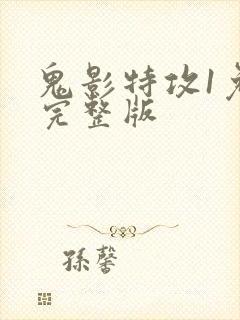 鬼影特攻1
完整版
孫馨